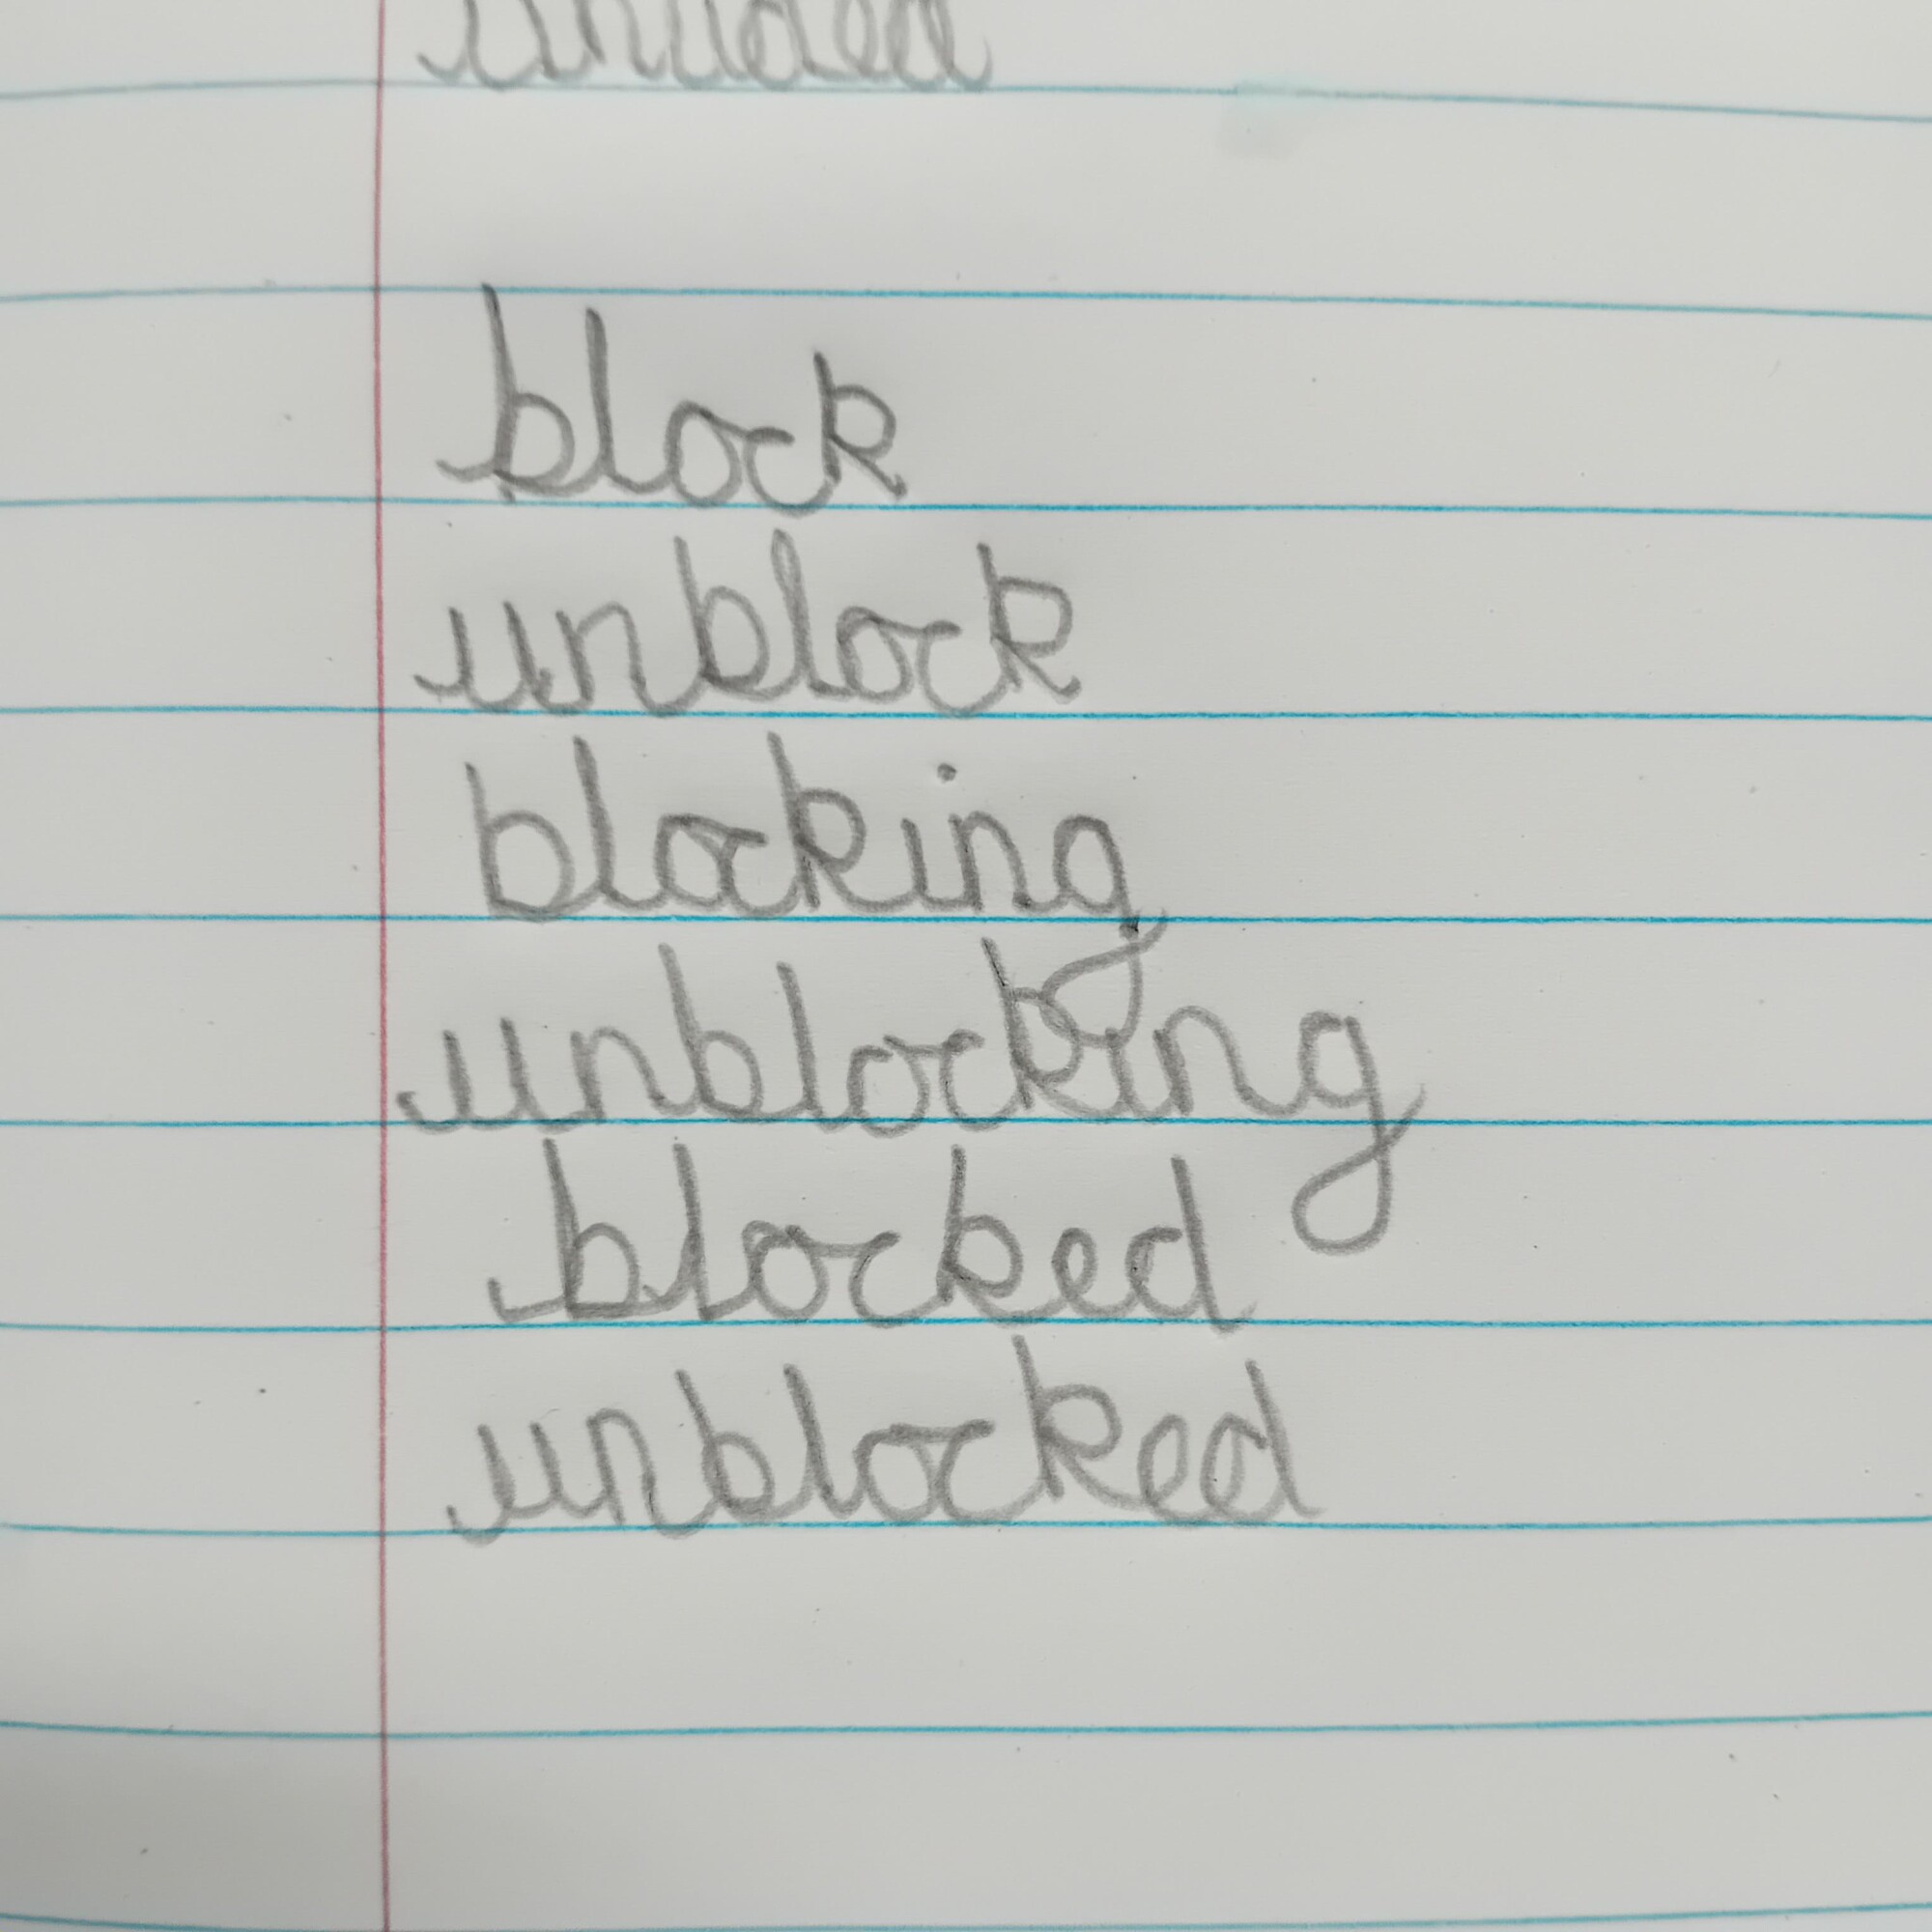 block
unblock
blocking
unblocking
blocked
unblocked